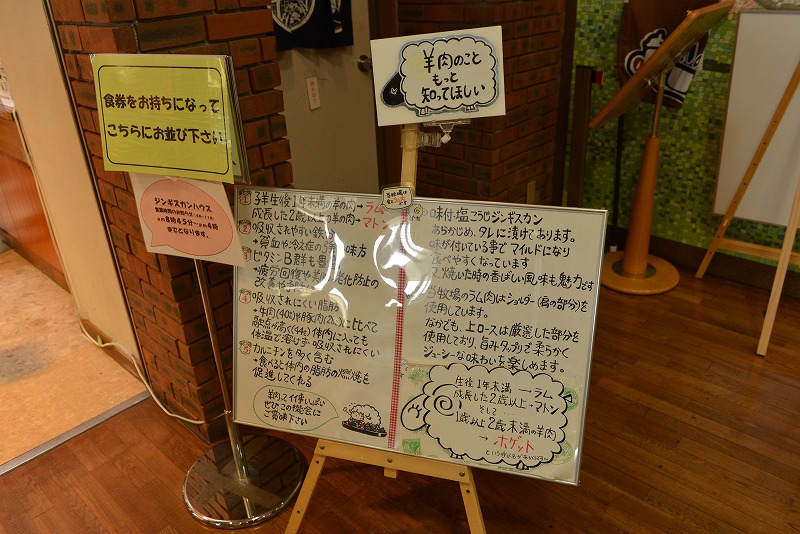 食券をお持ちになって
こちらにお並び下さい
ジンギスカンハウス
AM8時45分～PM4時
までとなります。
羊肉のこと
もっと
知ってほしい
① 子羊生後1年未満の羊の肉→ラム
成長した2歳以上の羊の肉→マトン
② 吸収されやすい鉄
貧血や冷え症の
味方
③ ビタミンB群も豊
疲労回復や
老化防止の
改善や
④ 吸収されにくい脂肪
牛肉(40℃)や豚肉
に比べて
融点が高く(44℃)体内に入っても
体温で溶けず吸収されにくい
⑤ カルニチンを多く含む
食べると体内の脂肪の燃焼を
促進してくれる
羊肉って仕事いっぱい
ぜひこの機会に
ご賞味下さい
味付・塩こうじジンギスカン
あらかじめ、タレに漬けております。
味が付いている事でマイルドになり
食べやすくなっています
又、焼いた時の香ばしい風味も魅力です
当牧場のラム肉はショルダー(肩の部分)を
使用しています。
なかでも、上ロースは厳選した部分を
使用しており、旨みタップリで柔らかく
ジューシーな味わいを楽しめます。
生後1年未満→ラム
成長した2歳以上→マトン
そして
1歳以上2歳未満の羊肉
→ホゲット